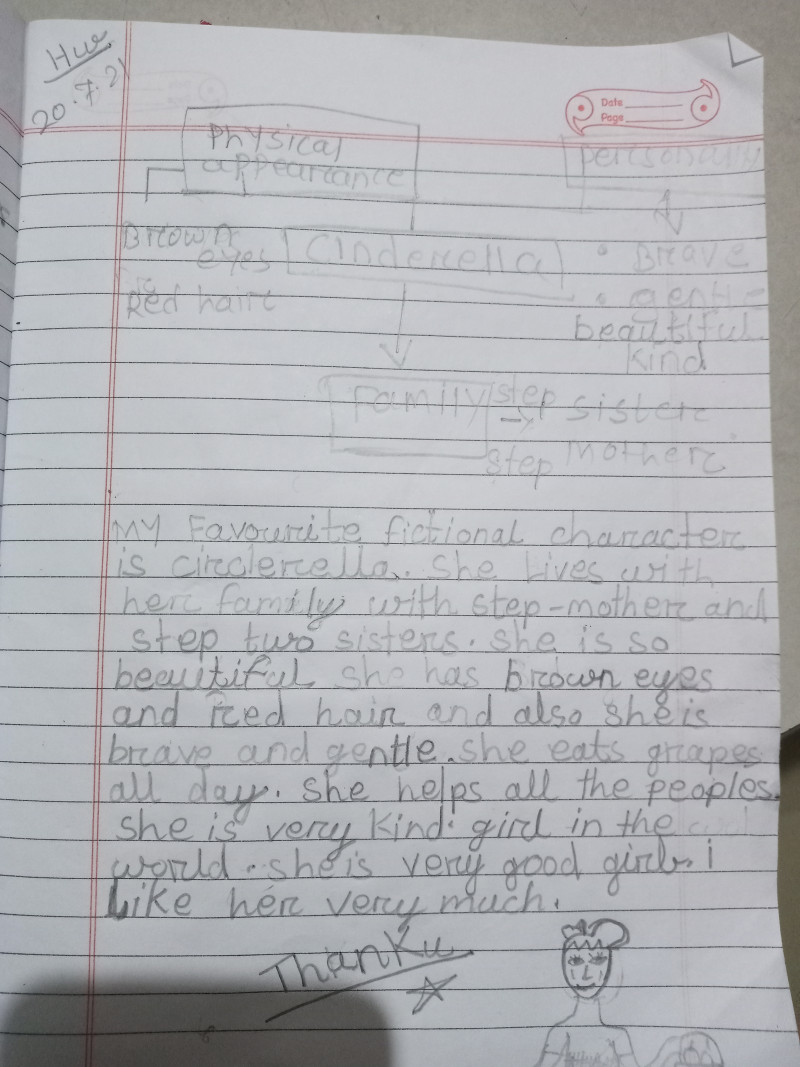 H.W
20.7.21
Date
Page
Physical
appearance
personally
Brown
eyes
Cinderella
• Brave
Red hair
• gentle
beautiful
kind
Family
step sister
step Mother
My Favourite fictional character
is circlerella. She Lives with
her family with step-mother and
step two sisters. she is so
beautiful she has brown eyes
and Red hair and also she is
brave and gentle. she eats grapes
all day. She helps all the peoples.
She is very kind. girl in the
world. she is very good girl. i
Like her very much.
ThanKu